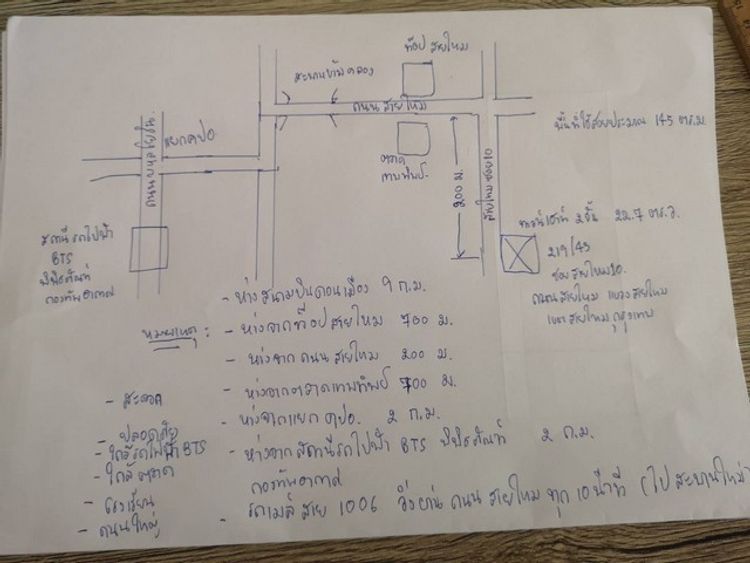 ท๊อป สายไหม
สะพานข้ามคลอง
ถนน สายไหม
พื้นที่ใช้สอยประมาณ 145 ตร.ม.
ถนน พหลโยธิน
แยก คปอ
ตลาด
เทพทิพย์
200 ม.
สายไหม ซอย 10
ทาวน์เฮาน์ 2 ชั้น 22.7 ตร.ว.
219/43
ซอย สายไหม 10.
ถนน สายไหม แขวง สายไหม
เขต สายไหม กรุงเทพ
สถานีรถไฟฟ้า
BTS
พิพิธภัณฑ์
กองทัพอากาศ
หมายเหตุ :
- ห่างสนามบินดอนเมือง 9 ก.ม.
- ห่างจากท๊อปสายไหม 700 ม.
- ห่างจาก ถนน สายไหม 200 ม.
- ห่างจากตลาดเทพทิพย์ 700 ม.
- ห่างจากแยก คปอ. 2 ก.ม.
- ห่างจาก สถานีรถไฟฟ้า BTS พิพิธภัณฑ์ 2 ก.ม.
กองทัพอากาศ
- รถเมล์ สาย 1006 วิ่งผ่าน ถนน สายไหม ทุก 10 นาที (ไป สะพานใหม่)
- สะดวก
- ปลอดภัย
- ใกล้รถไฟฟ้า BTS
- ใกล้ตลาด
- โรงเรียน
- ถนนใหญ่